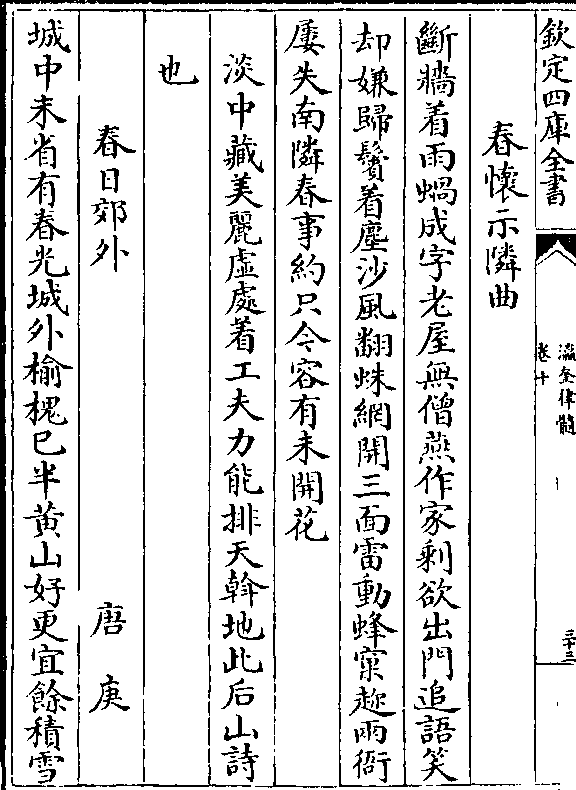 欽定四庫全書
瀛奎律髓
卷十
三十三
春懷示隣曲
斷牆着雨蝸成字老屋無僧燕作家剩欲出門追語笑
却嫌歸鬢着塵沙風翻蛛網開三面雷動蜂窠趂兩衙
屢失南隣春事約只今容有未開花
淡中藏美麗虛處着工夫力能排天斡地此后山詩
也
春日郊外 唐庚
城中未省有春光城外榆槐已半黄山好更宜餘積雪